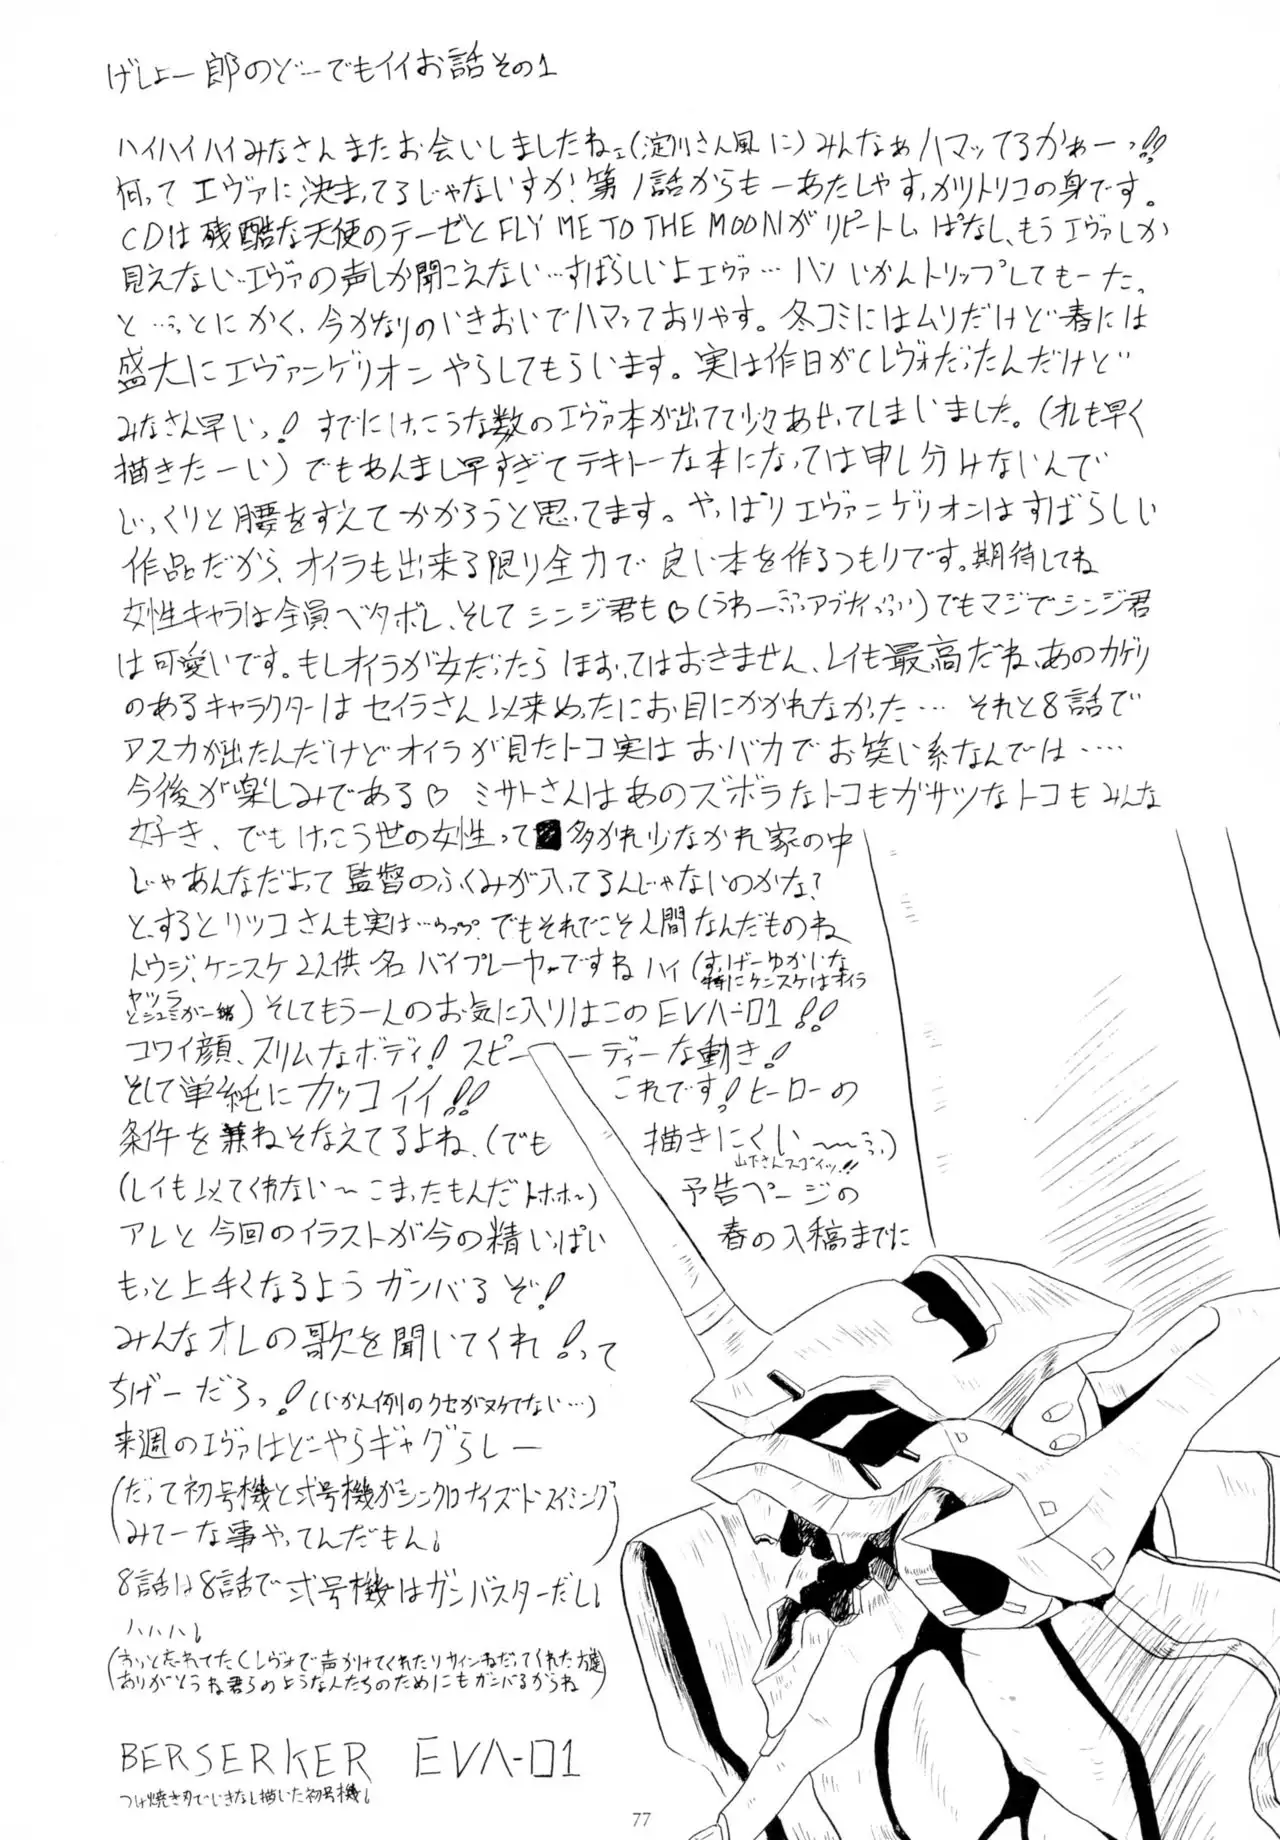 げしょー郎のどーでもイイお話その1
ハイハイハイみなさんまたお会いしましたねェ(淀川さん風に)みんなぁハマッてるかぁーっ!!
何ってエヴァに決まってるじゃないすか!第1話からもーあたしゃすっカリトリコの身です。
CDは残酷な天使のテーゼとFLY ME TO THE MOONがリピートしっぱなし、もうエヴァしか
見えない…エヴァの声しか聞こえない…すばらしいよエヴァ…ハッいかんトリップしてもーたっ
と…ふっとにかく、今かなりのいきおいでハマっておりやす。冬コミにはムリだけど春には
盛大にエヴァンゲリオンやらしてもらいます。実は昨日がCレヴォだったんだけど
みなさん早いっ!すでにけっこうな数のエヴァ本が出てて少々あせってしまいました。(オレも早く
描きたーい)でもあんまし早すぎてテキトーな本になっては申し分けないんで
じっくりと腰をすえてかかろうと思ってます。やっぱりエヴァンゲリオンはすばらしい
作品だから、オイラも出来る限り全力で良い本を作るつもりです。期待してね
女性キャラは全員ベタボレ、そしてシンジ君も♡(うわーふっアブナイっふい)でもマジでシンジ君
は可愛いです。もしオイラが女だったらほおってはおきません、レイも最高だね、あのカゲリ
のあるキャラクターはセイラさん以来めったにお目にかかれなかった…それと8話で
アスカが出たんだけどオイラが見たトコ実はおバカでお笑い系なんでは……
今後が楽しみである♡ミサトさんはあのズボラなトコもガサツなトコもみんな
好き、でもけっこう世の女性って多かれ少なかれ家の中
じゃあんなだよって監督のふくみが入ってるんじゃないのかな?
と、するとリッコさんも実は…ぅっぷっ。でもそれでこそ人間なんだものね
トウジ、ケンスケ2人供名バイプレーヤーですねハイ(すっげーゆかいな
特にケンスケはオイラ
ヤツラ
とシュミが一緒)そしてもう一人のお気に入りはこのEVA-01!!
コワイ顔、スリムなボディ!スピーーディーな動き!
そして単純にカッコイイ!!これです!ヒーローの
条件を兼ねそなえてるよね、(でも描きにくい〜〜ふっ)
山下さんスゴイッ!!
(レイも似てくれない〜こまったもんだトホホ〜)予告ページの
アレと今回のイラストが今の精いっぱい春の入稿までに
もっと上手くなるようガンバるぞ!
みんなオレの歌を聞いてくれ!って
ちげーだろっ!(いかん例のクセがヌケてない…)
来週のエヴァはどーやらギャグらしー
(だって初号機と弐号機がシンクロナイズドスイミング
みてーな事やってんだもん。)
8話は8話で弐号機はガンバスターだし。
ハハハ。
(おっと忘れてたCレヴォで声かけてくれたりサインねだってくれた方達
ありがとうね君らのような人たちのためにもガンバるからね)
BERSERKER EVA-01
つけ焼き刃でいきなし描いた初号機。
77